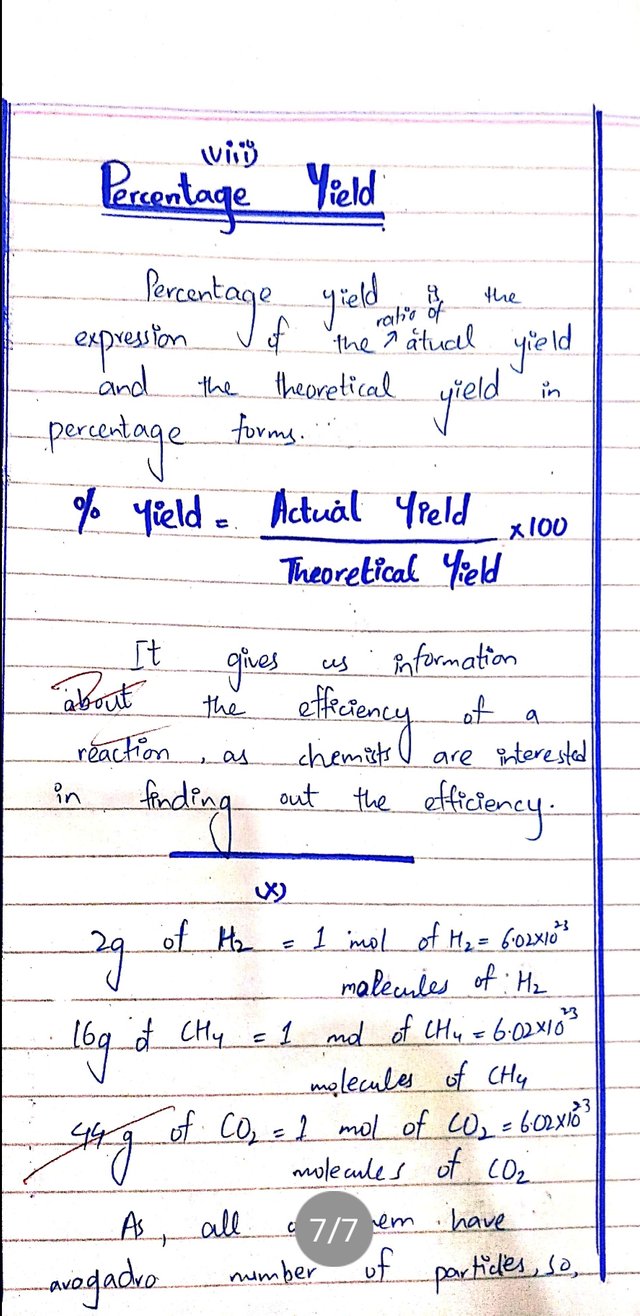 (viii)
Percentage Yield
Percentage yield is the
expression of the ratio of atuall yield
and the theoretical yield in
percentage forms.
% Yield = Actual Yield / Theoretical Yield ×100
It gives us information
about the efficiency of a
reaction, as chemists are interested
in finding out the efficiency.
(X)
2g of H₂ = 1 mol of H₂ = 6.02×10²³
malecules of H₂
16g of CH₄ = 1 mol of CH₄ = 6.02×10²³
molecules of CH₄
44 g of CO₂ = 1 mol of CO₂ = 6.02×10²³
molecules of CO₂
As, all have
7/7
avagadro number of particles, so,